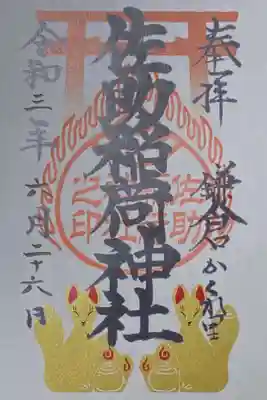 奉拝　鎌倉かくれ里
佐助稲荷神社
佐助
之印
令和三年　六月二十六日